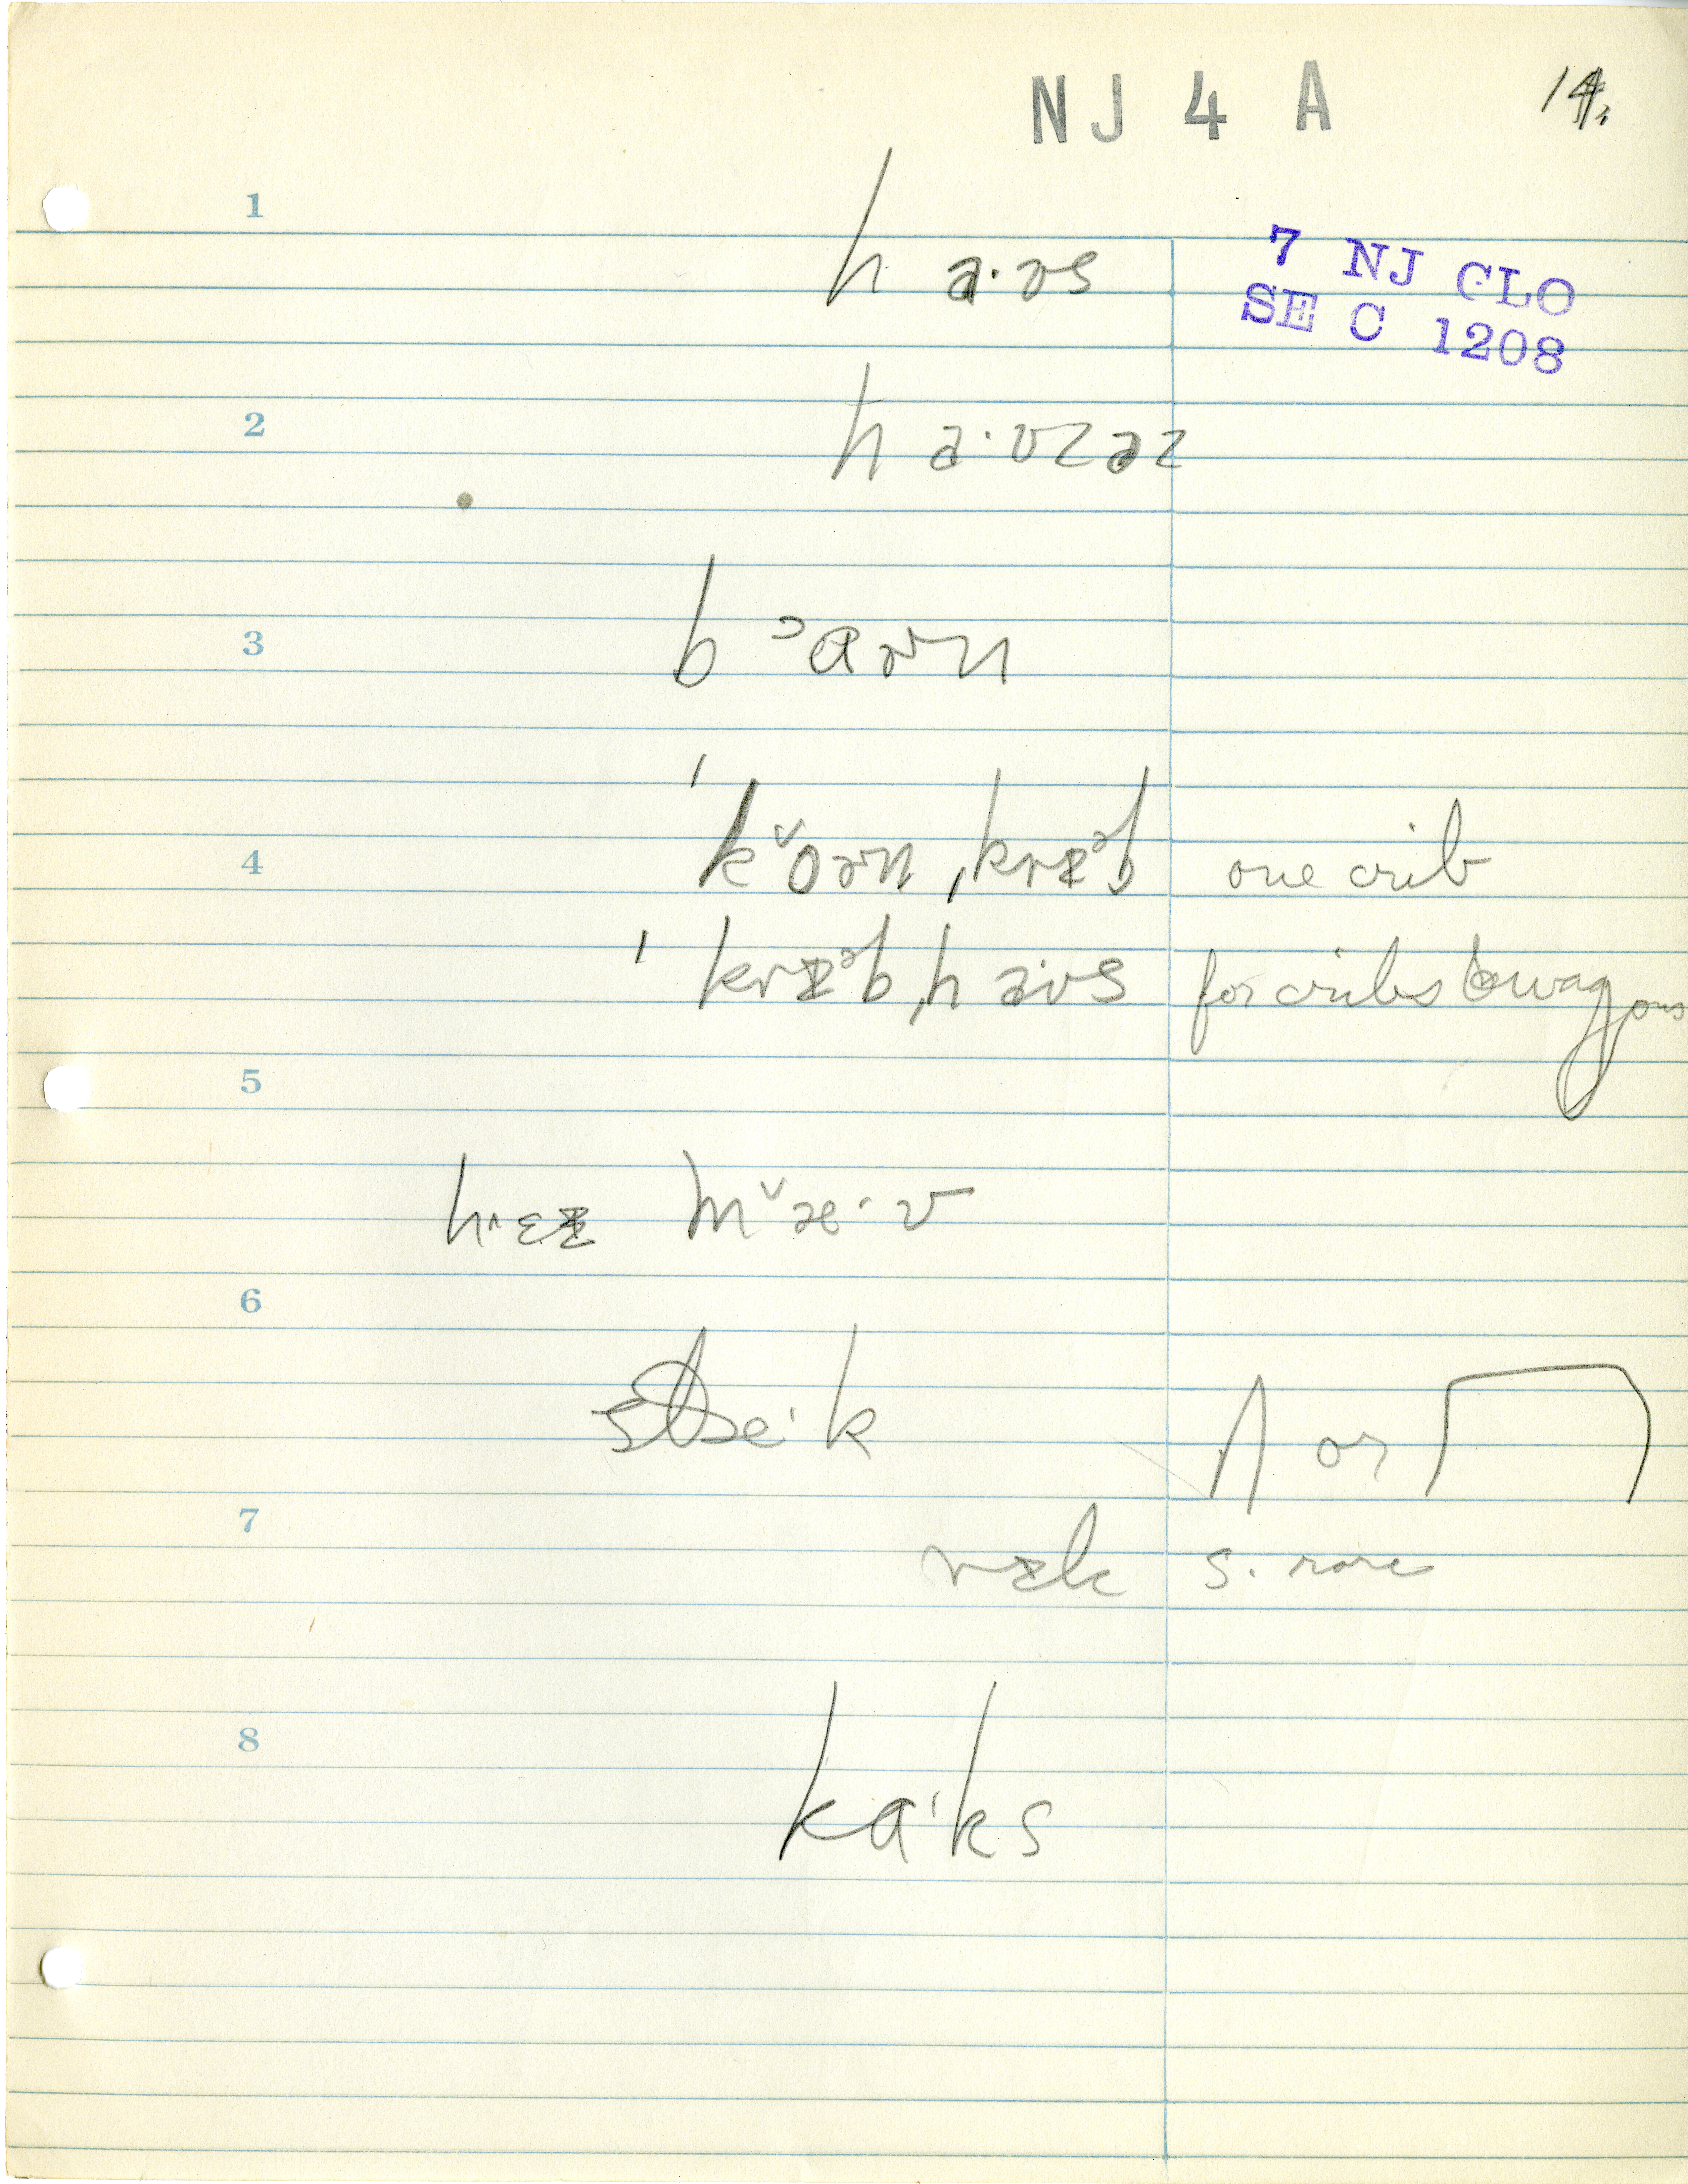 NJ 4 A 14.
1
ha·ʊs
7 NJ CLO
SE C 1208
2
ha·ʊzəz
3
bᵓɑɚn
4
ˈkˇoɚn ˌkrɪᵊb one crib
ˈkrɪᵊb ˌhaʊs for cribs & wagons
5
h^ɛɪ mˇæ·ʊ
6
stæ·k /\ or
7
rɪk s. rare
8
kɑ·ks